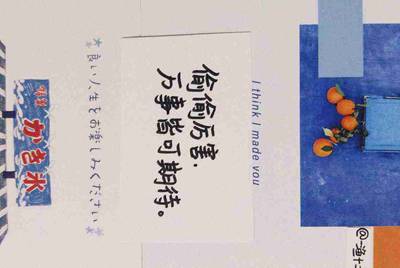 偷偷厉害.
万事皆可期待。
I think I made you
良い人生をお楽しみください
かき氷